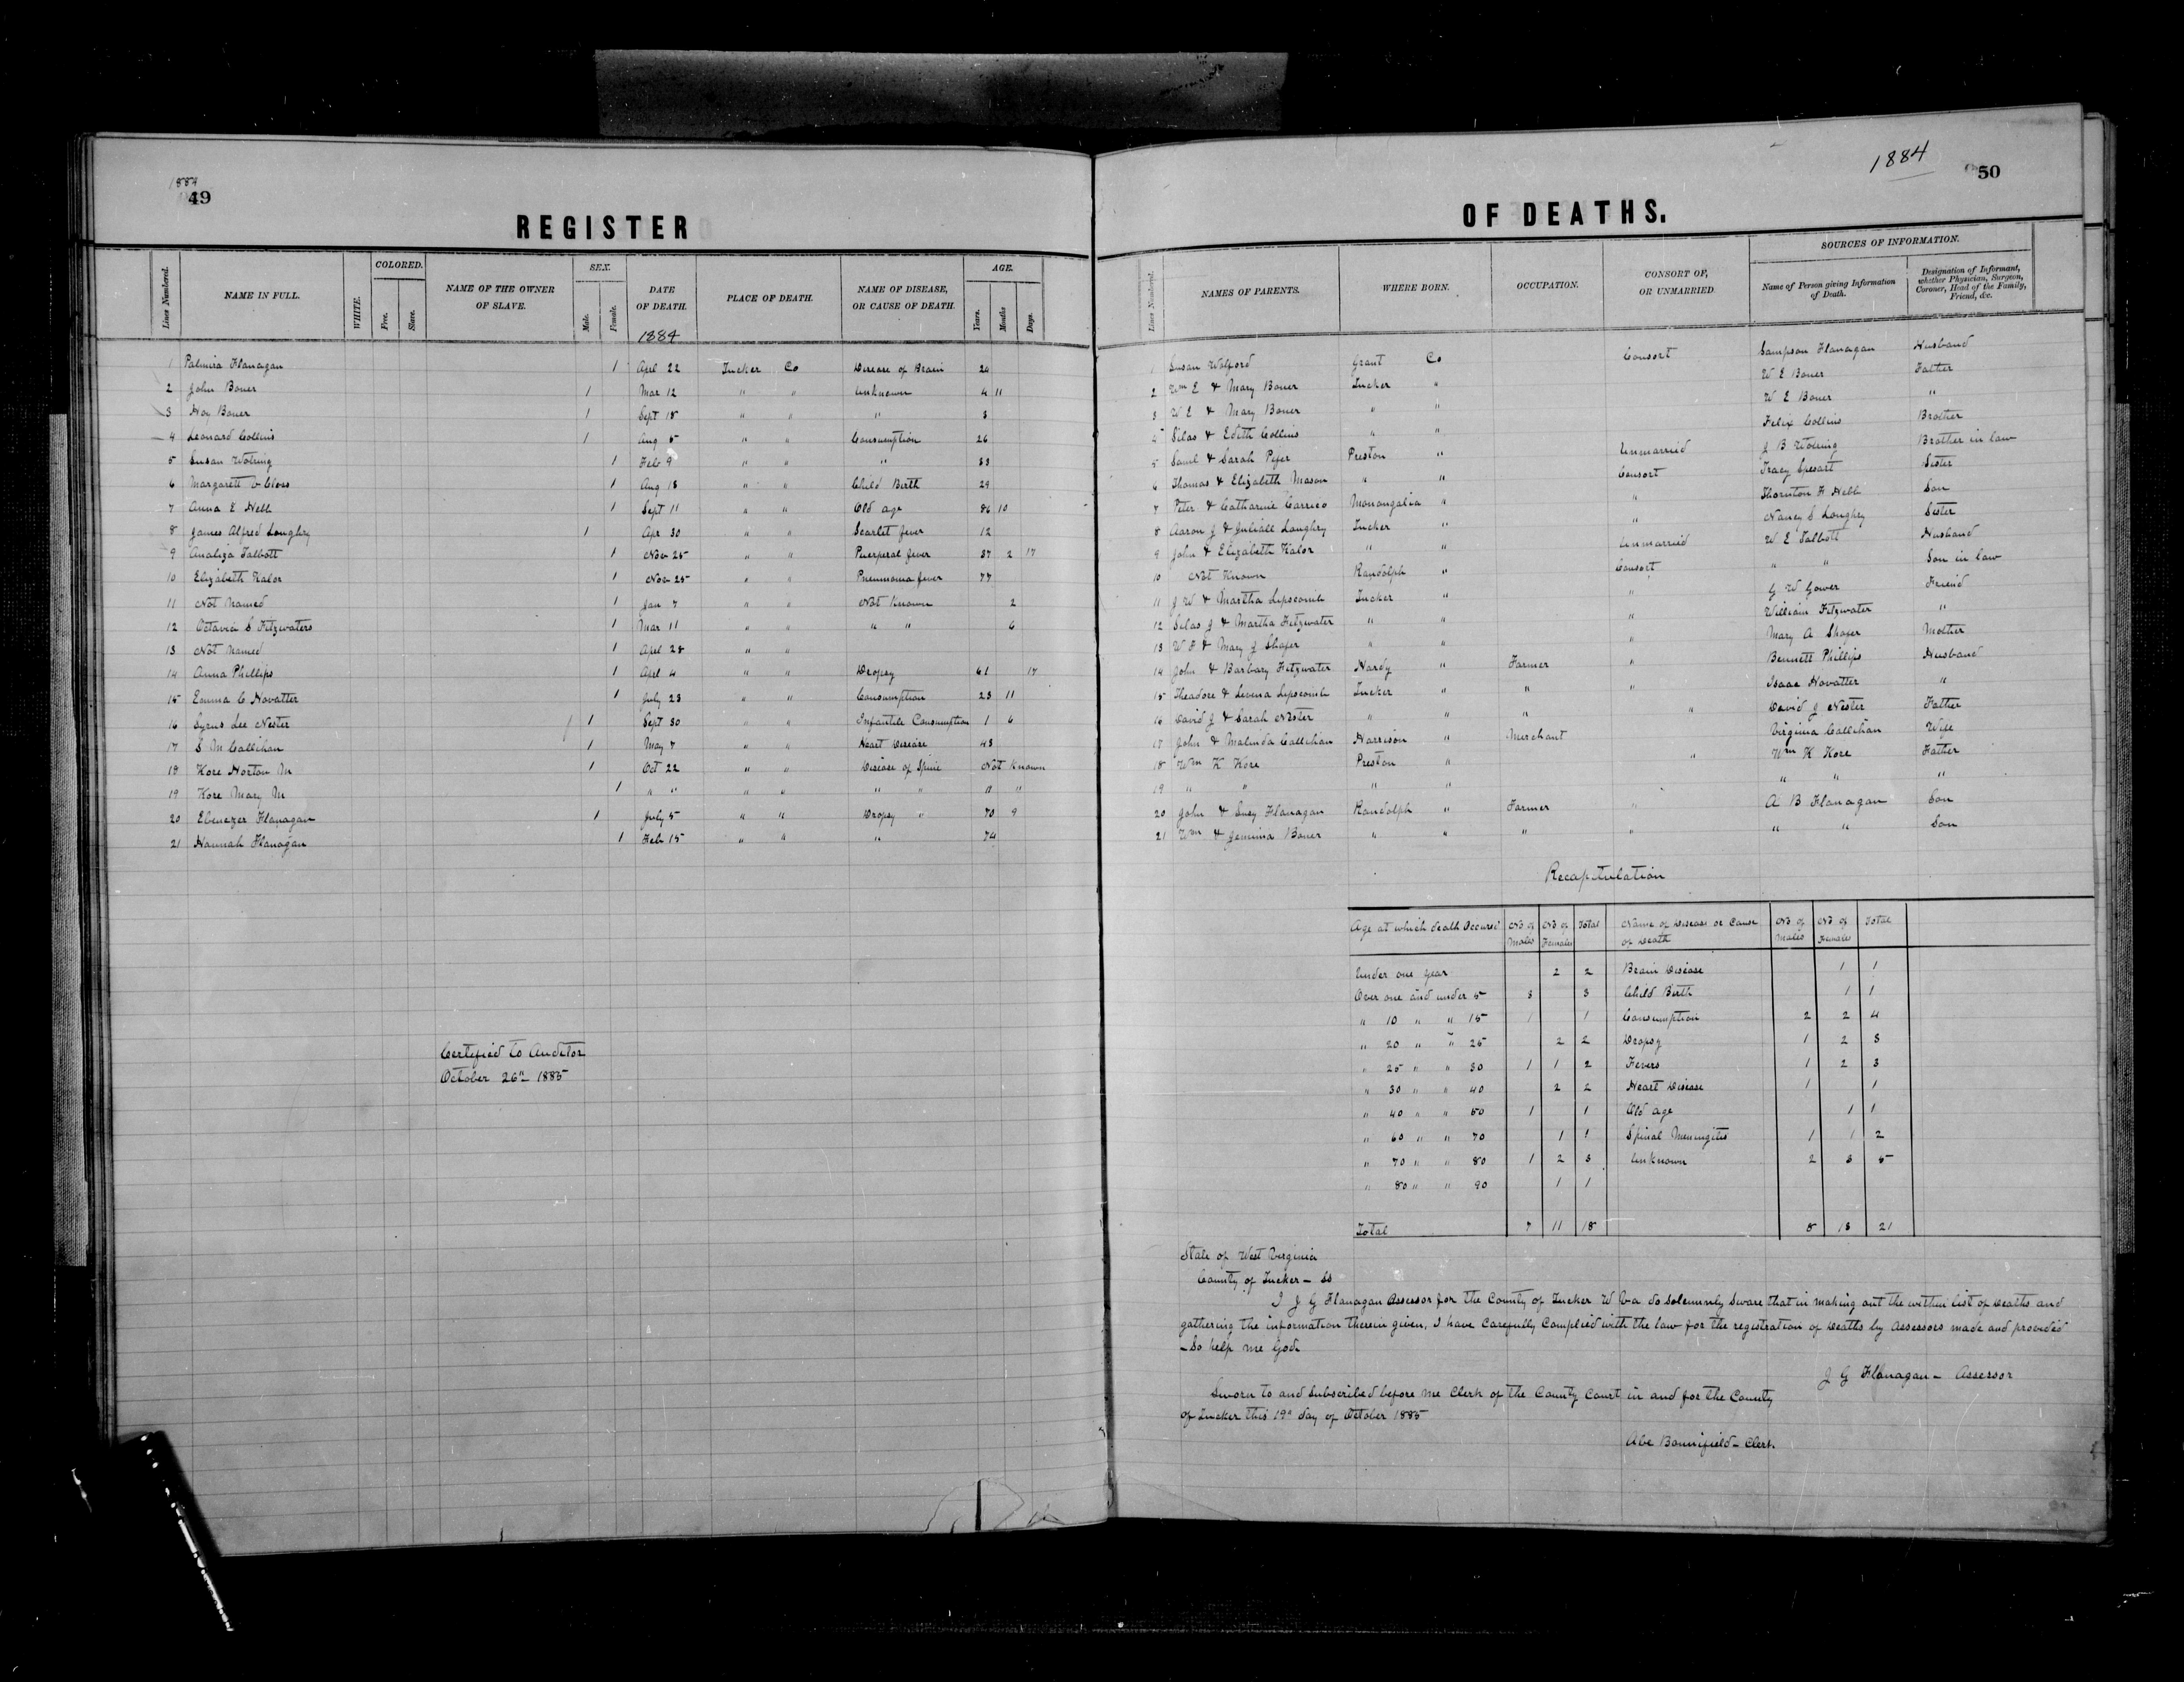 1884
49
REGISTER
Lines Numbered. NAME IN FULL. WHITE. COLORED. Free. Slave. NAME OF THE OWNER OF SLAVE. SEX. Male. Female. DATE OF DEATH. PLACE OF DEATH. NAME OF DISEASE, OR CAUSE OF DEATH. AGE. Years. Months Days.
1884
1 Palmira Flanagan 1 Apl 22 Tucker Co Disease of Brain 24
2 John Boner 1 Mar 12 " " Unknown 4 11
3 Boner 1 Sept 18 " " " 3
4 Leonard Collins 1 Aug 5 " " Consumption 26
5 Susan Wotring 1 Feb 9 " " " 33
6 Margarett V Closs 1 Aug 18 " " Child Birth 29
7 Anna E Nebb 1 Sept 11 " " Old age 86 10
8 James Alfred Loughry 1 Apr 30 " " Scarlet fever 12
9 Analiza Talbott 1 Nov 25 " " Puerperal fever 37 2 17
10 Elizabeth Kalor 1 Nov 25 " " Pneumonia fever 77
11 Not Named 1 Jan 7 " " Not Known 2
12 Octavia S Fitzwaters 1 Mar 11 " " " " 6
13 Not Named 1 Apl 28 " "
14 Anna Phillips 1 Apl 4 " " Dropsy 61 17
15 Emma C Novatter 1 July 23 " " Consumption 23 11
16 Syrus Lee Nester 1 Sept 30 " " Infantile Consumption 1 6
17 S M Callihan 1 May 7 " " Heart Disease 43
18 Kore Norton M 1 Oct 22 " " Disease of Spine Not Known
19 Kore Mary M 1 " " " " " " " "
20 Ebenezer Flanagan 1 July 5 " " Dropsy " 70 9
21 Hannah Flanagan 1 Feb 15 " " " 74
Certified to Auditor
October 26" 1885
1884
50
OF DEATHS.
Lines Numbered. NAMES OF PARENTS. WHERE BORN. OCCUPATION. CONSORT OF, OR UNMARRIED. SOURCES OF INFORMATION. Name of Person giving Information of Death. Designation of Informant, whether Physician, Surgeon, Coroner, Head of the Family, Friend, &c.
1 Susan Wolford Grant Co Consort Sampson Flanagan Husband
2 Wm E & Mary Boner Tucker " W E Boner Father
3 W E & Mary Boner " " W E Boner "
4 Silas & Edith Collins " " Felix Collins Brother
5 Saml & Sarah Pifer Preston " Unmarried J B Wotring Brother in law
6 Thomas & Elizabeth Mason " " Consort Tracy Spesart Sister
7 Peter & Catharine Carrico Monongalia " " Thornton F Nebb Son
8 Aaron J & Juliall Loughry Tucker " " Nancy S Loughry Sister
9 John & Elizabeth Kalor " " Unmarried W E Talbott Husband
10 Not Known Randolph " Consort " " Son in law
11 J W & Martha Lipscomb Tucker " " G W Gower Friend
12 Silas J & Martha Fitzwater " " " William Fitzwater "
13 W F & Mary J Shafer " " " Mary A Shafer Mother
14 John & Barbary Fitzwater Hardy " Farmer " Bennett Phillips Husband
15 Theadore & Levina Lipscomb Tucker " " " Isaac Novatter "
16 David J & Sarah Nester " " " " David J Nester Father
17 John & Malinda Callihan Harrison " Merchant Virginia Callihan Wife
18 Wm K Kore Preston " " Wm K Kore Father
19 " " " " " " "
20 John & Susy Flanagan Randolph " Farmer " A B Flanagan Son
21 Wm & Jemima Boner " " " " " " Son
Recapitulation
Age at which death Occured No of Males No of Females Total Name of Disease or Cause of Death No of Males No of Females Total
Under one year 2 2 Brain Disease 1 1
Over one and under 5 3 3 Child Birth 1 1
" 10 " " 15 1 1 Consumption 2 2 4
" 20 " " 25 2 2 Dropsy 1 2 3
" 25 " " 30 1 1 2 Fevers 1 2 3
" 30 " " 40 2 2 Heart Disease 1 1
" 40 " " 50 1 1 Old age 1 1
" 60 " " 70 1 1 Spinal Meningites 1 1 2
" 70 " " 80 1 2 3 Unknown 2 3 5
" 80 " " 90 1 1
Total 7 11 18 8 13 21
State of West Virginia
County of Tucker - SS
I J G Flanagan Assessor for the County of Tucker W Va do solemnly sware that in making out the within list of Deaths and
gathering the information therein given, I have Carefully Complied with the law for the registration of Deaths by Assessors made and provided
- So help me God.
J G Flanagan - Assessor
Sworn to and Subscribed before me Clerk of the County Court in and for the County
of Tucker this 19" day of October 1885
Abe Bonnifield - Clerk.